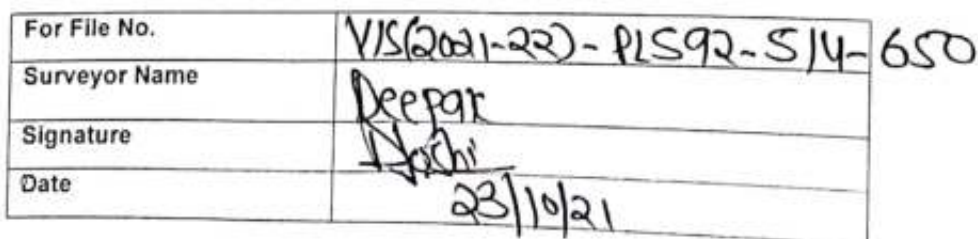 For File No. VIS(2021-22)-PL592-514-650
Surveyor Name Deepak
Signature Joshi
Date 23/10/21